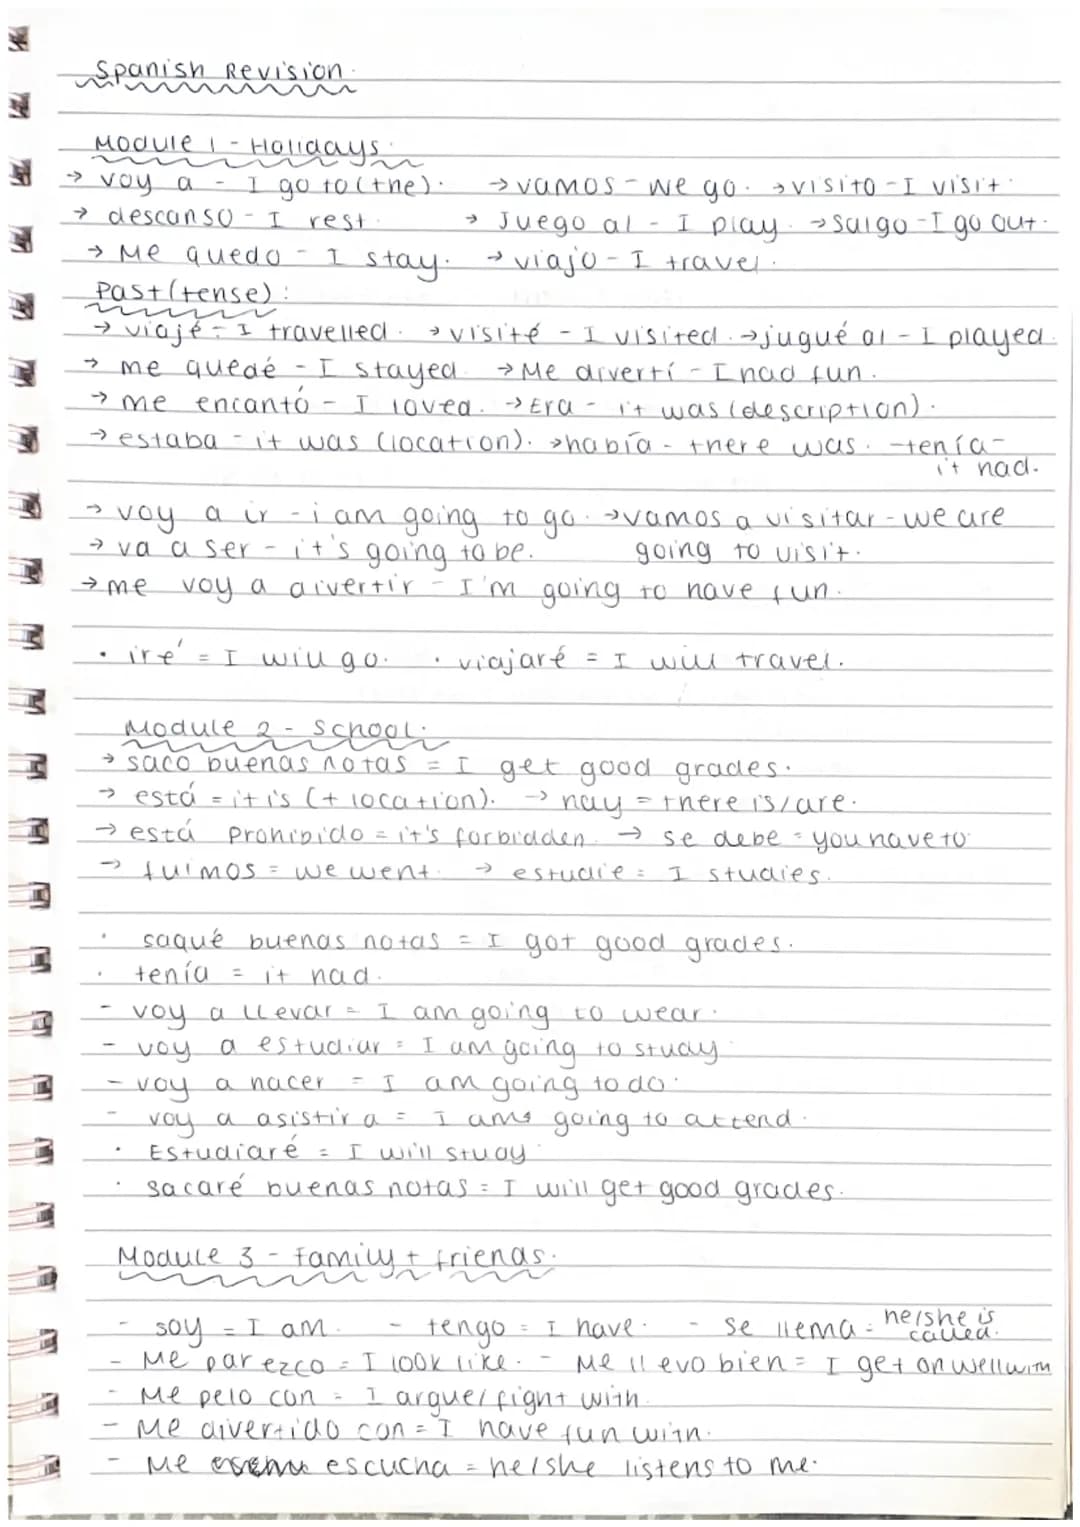 Spanish Revision.
Module 1 - Holidays.
→ voy a - I go to (the). → vamos - we go. → visito - I visit.
→ descanso - I rest. → Juego al - I play. → salgo - I go out.
→ Me quedo - I stay. → viajo - I travel.
Past (tense):
→ viajé - I travelled. → visité - I visited. → jugué al - I played.
→ me quedé - I stayed. → Me divertí - I had fun.
→ me encantó - I loved. → Era - it was (description).
→ estaba - it was (location). → había - there was. - tenía -
it had.
→ voy a ir - i am going to go. → vamos a visitar - we are
→ va a ser - it's going to be. going to visit.
→ me voy a divertir - I'm going to have fun.
• iré = I will go. • viajaré = I will travel.
Module 2 - School.
→ saco buenas notas = I get good grades.
→ está = it is (+ location). → hay = there is/are.
→ está prohibido = it's forbidden. → se debe = you have to
→ fuimos = we went. → estudie = I studies.
• saqué buenas notas = I got good grades.
• tenía = it had.
- voy a llevar = I am going to wear.
- voy a estudiar = I am going to study.
- voy a hacer = I am going to do.
- voy a asistir a = I am going to attend.
• Estudiaré = I will study.
• sacaré buenas notas = I will get good grades.
Module 3 - family + friends.
- soy = I am. - tengo = I have. - se llema = he/she is called.
- Me parezco = I look like. - Me llevo bien = I get on well with
- Me pelo con = I argue/fight with.
- Me divertido con = I have fun with.
- Me escucha = he/she listens to me.